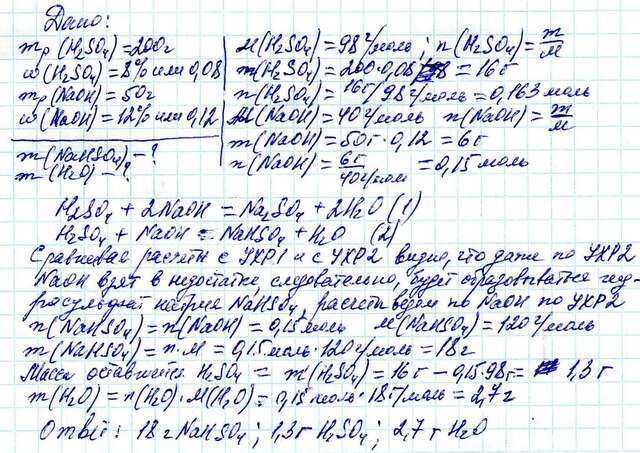 Дано:
mр (H₂SO₄) = 200г
ω(H₂SO₄) = 8% или 0,08
mр (NaOH) = 50г
ω(NaOH) = 12% или 0,12
m(NaHSO₄) - ?
m(H₂O) - ?
M(H₂SO₄) = 98 г/моль; n(H₂SO₄) = m/M
m(H₂SO₄) = 200·0,08 = 16г
n(H₂SO₄) = 16г/98 г/моль = 0,163 моль
M(NaOH) = 40 г/моль n(NaOH) = m/M
m(NaOH) = 50г·0,12 = 6г
n(NaOH) = 6г/40г/моль = 0,15 моль
H₂SO₄ + 2NaOH = Na₂SO₄ + 2H₂O (1)
H₂SO₄ + NaOH = NaHSO₄ + H₂O (2)
Сравнивая расчёты с УХР1 и с УХР2 видно, что даже по УХР2
NaOH взят в недостатке следовательно, будет образовываться гид-
росульфат натрия NaHSO₄, расчёт ведём по NaOH по УХР2
n(NaHSO₄) = n(NaOH) = 0,15 моль M(NaHSO₄) = 120 г/моль
m(NaHSO₄) = n·M = 0,15 моль·120 г/моль = 18г
Масса оставшейся H₂SO₄ = m(H₂SO₄) = 16г - 0,15·98г = 1,3г
m(H₂O) = n(H₂O)·M(H₂O) = 0,15 моль·18г/моль = 2,7г
Ответ: 18 г NaHSO₄; 1,3г H₂SO₄; 2,7 г H₂O